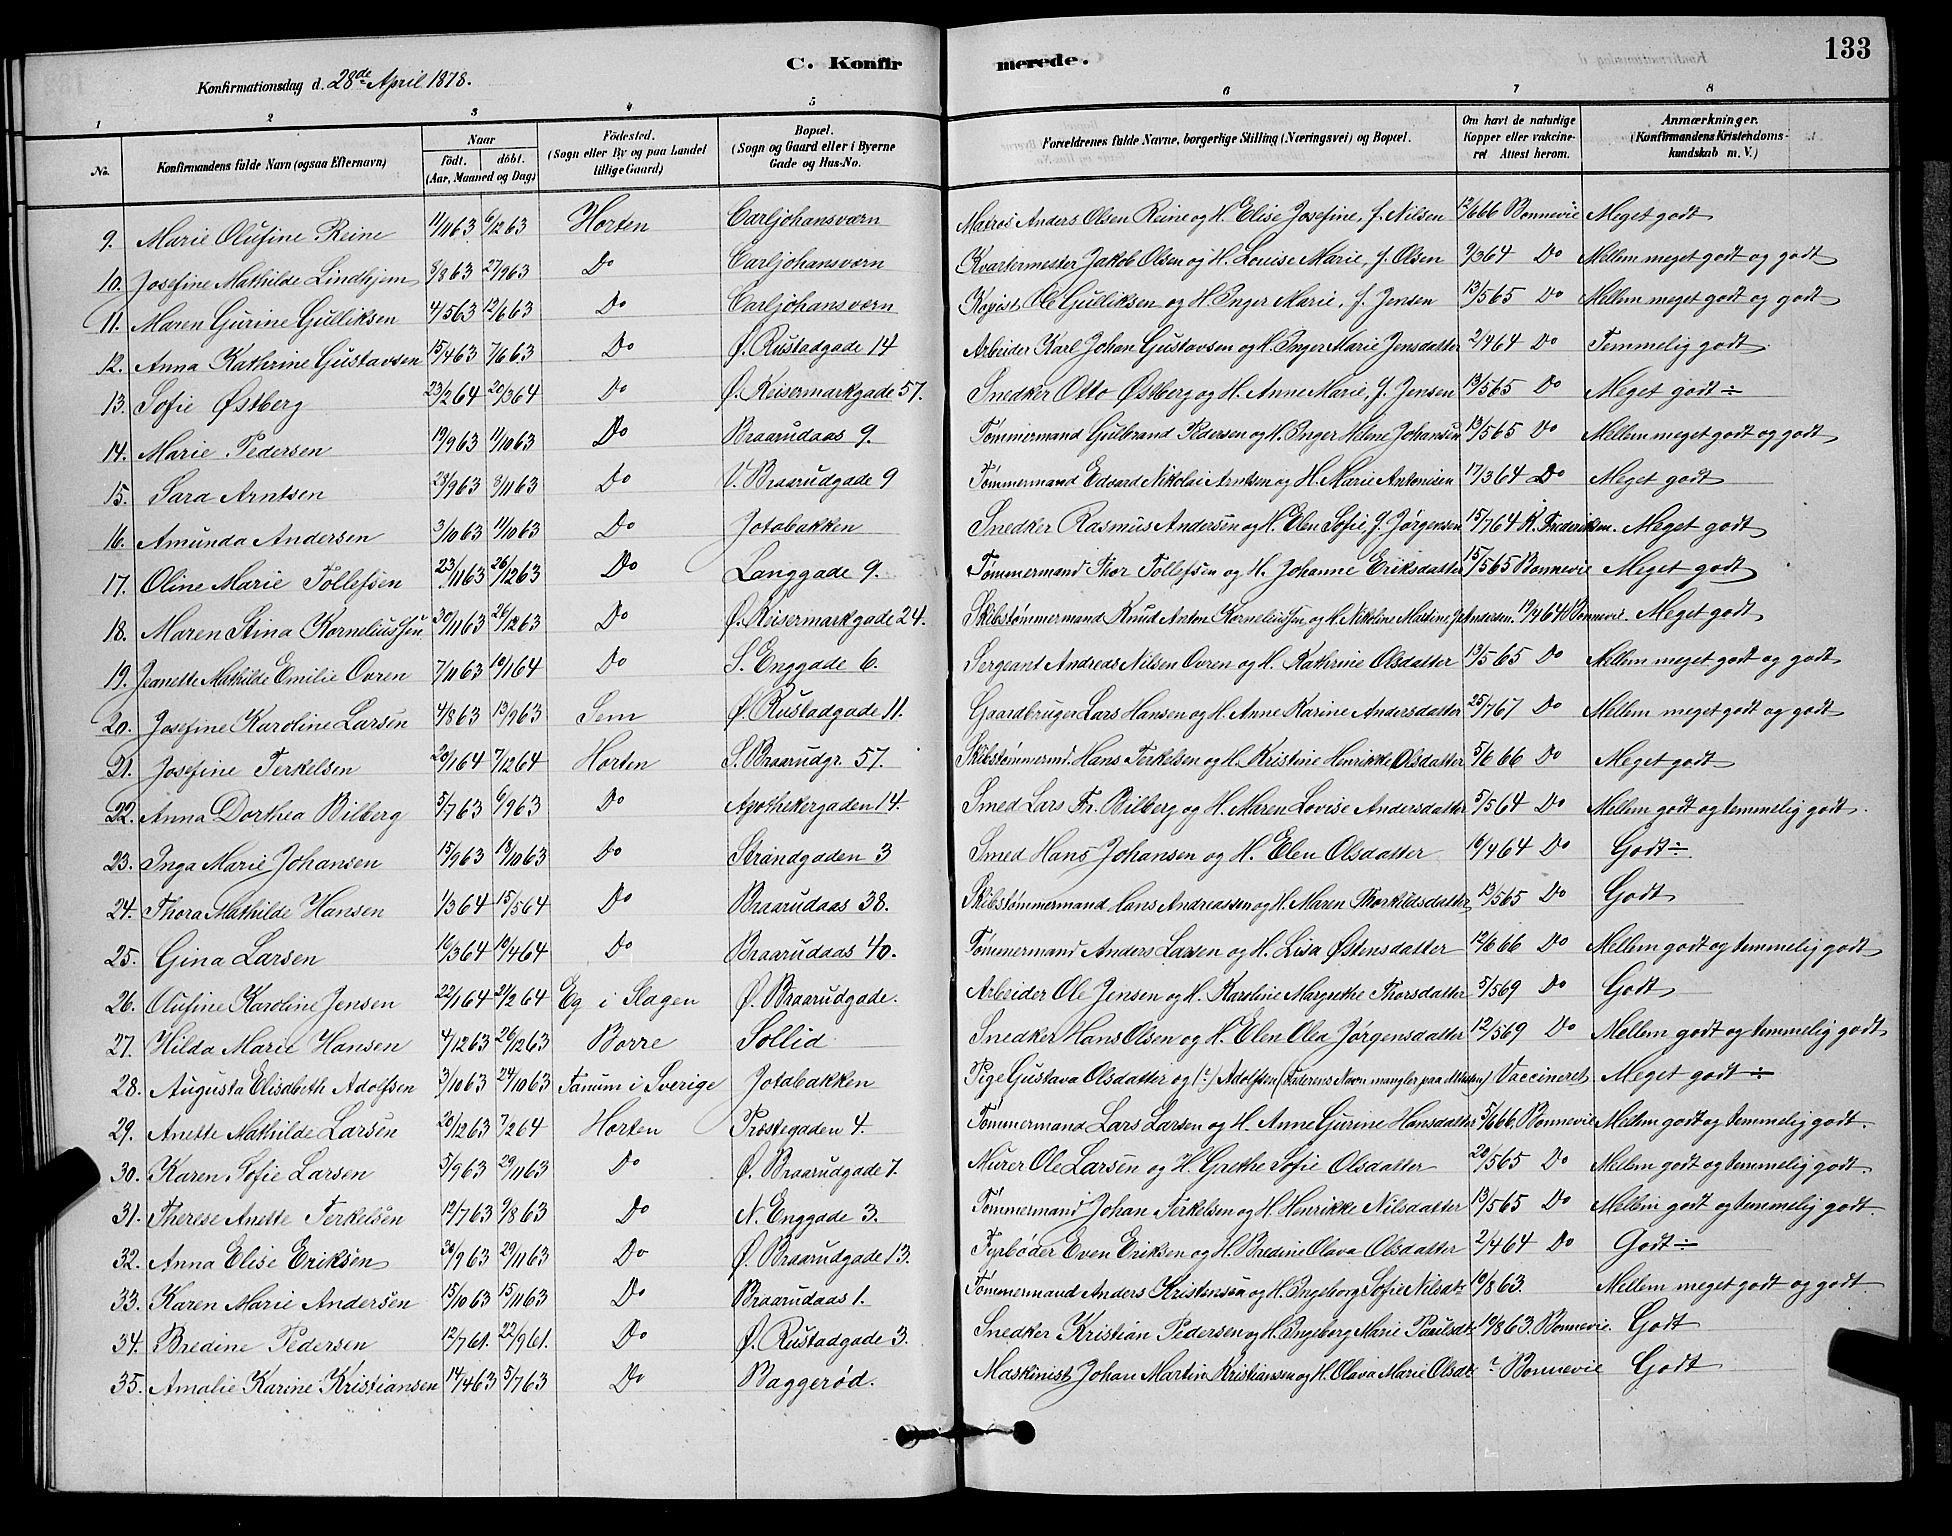 133
C. Konfirmerede.
Konfirmationsdag d. 28de April 1878.
1 2 3 4 5 6 7 8
No. Konfirmandens fulde Navn (ogsaa Efternavn) Naar født. døbt. (Aar, Maaned og Dag) Fødested. (Sogn eller By og paa Landet tillige Gaard) Bopæl. (Sogn og Gaard eller i Byerne Gade og Hus-No. Forældrenes fulde Navne, borgerlige Stilling (Næringsvei) og Bopæl. Om havt de naturlige Kopper eller vakcineret Attest herom. Anmærkninger. (Konfirmandens Kristendomskundskab m. V.)
9. Marie Olufine Reine 11/1163 6/1263 Horten Carljohansværn Matros Anders Olsen Reine og H. Elise Josefine, f. Nilsen 12/666 Bonnevie Meget godt
10. Josefine Mathilde Lindhjem 8/863 27/963 Do Carljohansværn Kvartermester Jakob Olsen og H. Louise Marie, f. Olsen 9/364 Do Mellem meget godt og godt
11. Maren Gurine Gulliksen 4/563 12/663 Do Carljohansværn Kopist Ole Gulliksen og H. Inger Marie, f. Jensen 13/565 Do Mellem meget godt og godt
12. Anna Kathrine Gustavsen 15/463 7/663 Do Ø. Rustadgade 14 Arbeider Karl Johan Gustavsen og H. Inger Marie Jensdatter 2/464 Do Temmelig godt
13. Sofie Østberg 23/264 20/364 Do Ø. Keisermarkgade 57. Snedker Otto Østberg og H. Anne Marie, f. Jensen 13/565 Do Meget godt ÷
14. Marie Pedersen 19/963 11/1063 Do Braarudaas 9. Tømmermand Gulbrand Pedersen og H. Inger Helene Johansen 13/565 Do Mellem meget godt og godt
15. Sara Arntsen 28/963 8/1163 Do V. Braarudgade 9 Tømmermand Edvard Nikolai Arntsen og H. Marie Antonisen 17/364 Do Meget godt
16. Amunda Andersen 3/1063 11/1063 Do Jotabakken Snedker Rasmus Andersen og H. Elen Sofie f. Jørgensen 15/764 K. Frederiksen. Meget godt
17. Oline Marie Tollefsen 23/1163 26/1263 Do Langgade 9. Tømmermand Thor Tollefsen og H. Johanne Eriksdatter 15/565 Bonnevie Meget godt
18. Maren Stina Korneliussen 30/1163 26/1263 Do Ø. Keisermarkgade 24. Skibstømmermand Knud Anton Korneliussen og H. Nikoline Maltine f. Andersen 19/464 Bonnevie. Meget godt
19. Jeanette Mathilde Emilie Ovren 7/1163 10/164 Do S. Enggade 6. Sergeant Andreas Nilsen Ovren og H. Kathrine Olsdatter 13/565 Do Mellem meget godt og godt
20. Josefine Karoline Larsen 4/863 13/963 Sem Ø. Rustadgade 11. Gaardbruger Lars Hansen og H. Anne Karine Andersdatter 25/767 Do Mellem meget godt og godt
21. Josefine Terkelsen 20/164 7/1264 Horten S. Braarudgr. 57. Skibstømmermd. Hans Terkelsen og H. Kristine Henrikke Olsdatter 5/666 Do Meget godt
22. Anna Dorthea Bilberg 5/763 6/963 Do Apothekergaden 14. Smed Lars Fr. Bilberg og H. Maren Lovise Andersdatter 5/564 Do Mellem godt og temmelig godt.
23. Inga Marie Johansen 15/963 18/1063 Do Strandgaden 3 Smed Hans Johansen og H. Elen Olsdatter 16/464 Do Godt ÷
24. Thora Mathilde Hansen 1/364 15/564 Do Braarudaas 38. Skibstømmermand Hans Andreassen og H. Maren Thorkildsdatter 13/565 Do Godt
25. Gina Larsen 16/364 10/464 Do Braarudaas 40. Tømmermand Anders Larsen og H. Lisa Østensdatter 12/666 Do Mellem godt og temmelig godt
26. Olufine Karoline Jensen 22/164 21/264 Eg i Slagen Ø. Braarudgade. Arbeider Ole Jensen og H. Karoline Margrethe Thorsdatter 5/569 Do Godt
27. Hilda Marie Hansen 4/1263 26/1263 Borre Sollid Snedker Hans Olsen og H. Elen Olea Jørgensdatter 12/569 Do Mellem godt og temmelig godt
28. Augusta Elisabeth Adolfsen 3/1063 24/1063 Tanum i Sverige Jotabakken Pige Gustava Olsdatter og (?) Adolfsen (Faderens Navn mangler paa Attesten) Vaccineret Meget godt ÷
29. Anette Mathilde Larsen 20/1263 7/264 Horten Prestegaden 4. Tømmermand Lars Larsen og H. Anne Gurine Hansdatter 5/666. Bonnevie Mellem godt og temmelig godt.
30. Karen Sofie Larsen 5/963 29/1163 Do Ø. Braarudgade 7. Murer Ole Larsen og H. Grethe Sofie Olsdatter 20/565 Do Mellem godt og temmelig godt
31. Therese Anette Terkelsen 12/763 9/863 Do N. Enggade 3. Tømmermand Johan Terkelsen og H. Henrikke Nilsdatter 13/565 Do Mellem godt og temmelig godt.
32. Anna Elise Eriksen 30/963 29/1163 Do Ø. Braarudgade 13. Fyrbøder Even Eriksen og H. Bredine Olava Olsdatter 2/464 Do Godt ÷
33. Karen Marie Andersen 15/1063 15/1163 Do Braarudaas 1. Tømmermand Anders Kristensen og H. Ingeborg Sofie Nilsdtr. 10/863. Mellem meget godt og godt.
34. Bredine Pedersen 12/761. 22/961. Do Ø. Rustadgade 3. Snedker Kristian Pedersen og H. Ingeborg Marie Paulsdtr. 10/863. Bonnevie. Godt
35. Amalie Karine Kristiansen 14/463 5/763 Do Baggerød. Maskinist Johan Martin Kristiansen og H. Olava Marie Olsdtr. ? Bonnevie Godt